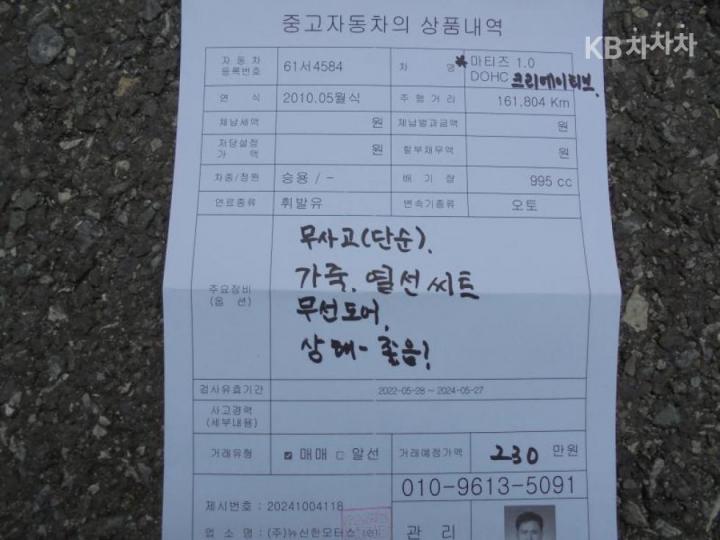 중고자동차의 상품내역
KB차차차
자 동 차
등록번호
61서4584
차 명
*마티즈 1.0
DOHC 크리에이티브.
연 식
2010.05월식
주 행 거 리
161,804 Km
체납세액
원
체납범과금액
원
저당설정
가 액
원
할부채무액
원
차종/정원
승용 / -
배 기 량
995 cc
연료종류
휘발유
변속기종류
오토
주요장비
(옵 션)
무사고(단순).
가죽. 열선씨트
무선도어,
상태- 좋음!
검사유효기간
2022-05-28 ~ 2024-05-27
사고경력
(세부내용)
거래유형
☑ 매매 □ 알선
거래예정가액
230 만원
제시번호 : 20241004118
010-9613-5091
업 소 명 : (주)뉴신한모터스
관 리